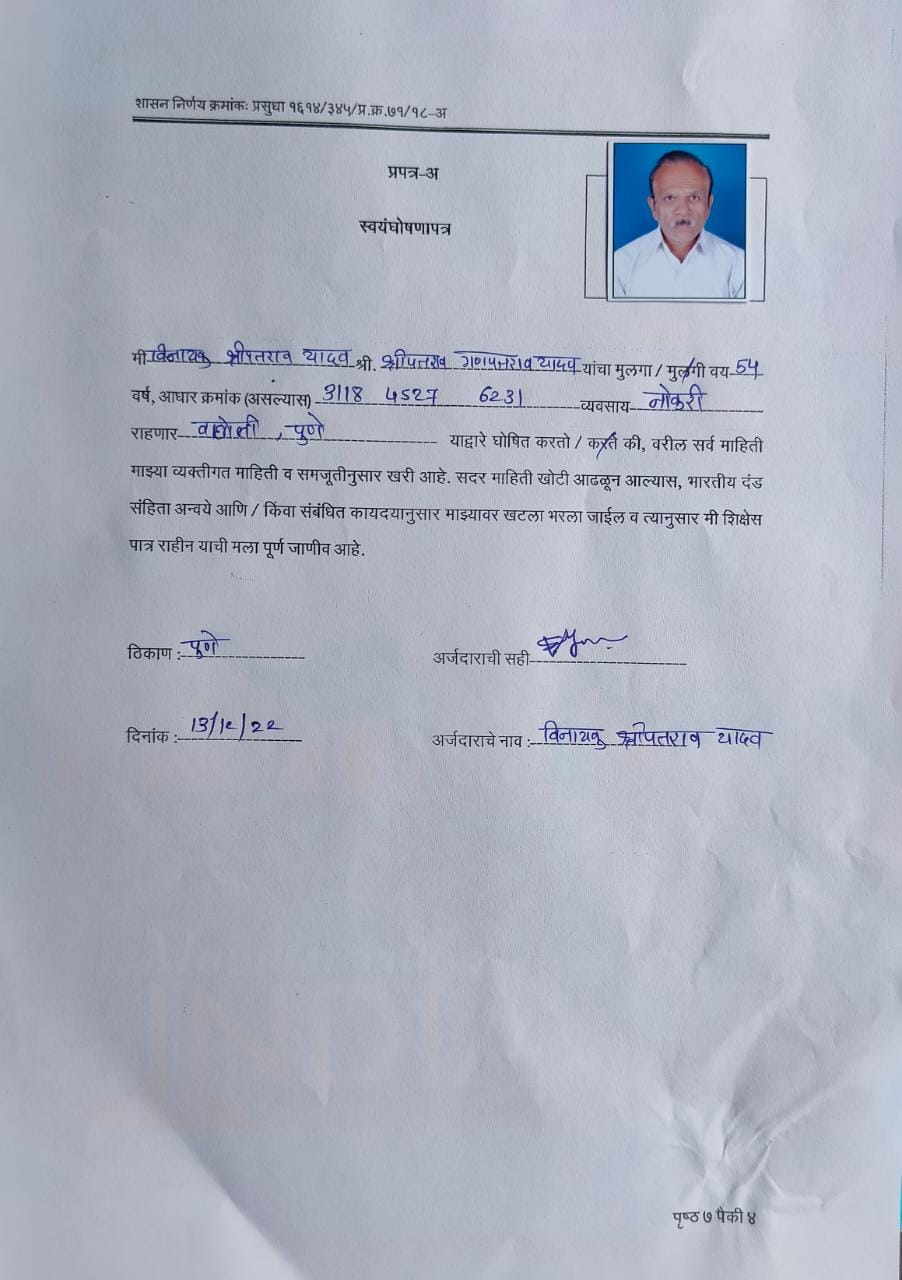 शासन निर्णय क्रमांकः प्रसुधा १६१४/३४५/प्र.क्र.७१/१८-अ
प्रपत्र-अ
स्वयंघोषणापत्र
मी विनायक श्रीपतराव यादव श्री. श्रीपतराव गणपतराव यादव यांचा मुलगा / मुलगी वय 54
वर्ष, आधार क्रमांक (असल्यास) 3118 4527 6231 व्यवसाय नोकरी
राहणार वाघोली, पुणे याद्वारे घोषित करतो / करते की, वरील सर्व माहिती
माझ्या व्यक्तीगत माहिती व समजूतीनुसार खरी आहे. सदर माहिती खोटी आढळून आल्यास, भारतीय दंड
संहिता अन्वये आणि / किंवा संबंधित कायदयानुसार माझ्यावर खटला भरला जाईल व त्यानुसार मी शिक्षेस
पात्र राहीन याची मला पूर्ण जाणीव आहे.
ठिकाण : पुणे अर्जदाराची सही
दिनांक : 13/12/22 अर्जदाराचे नाव : विनायक श्रीपतराव यादव
पृष्ठ ७ पैकी ४